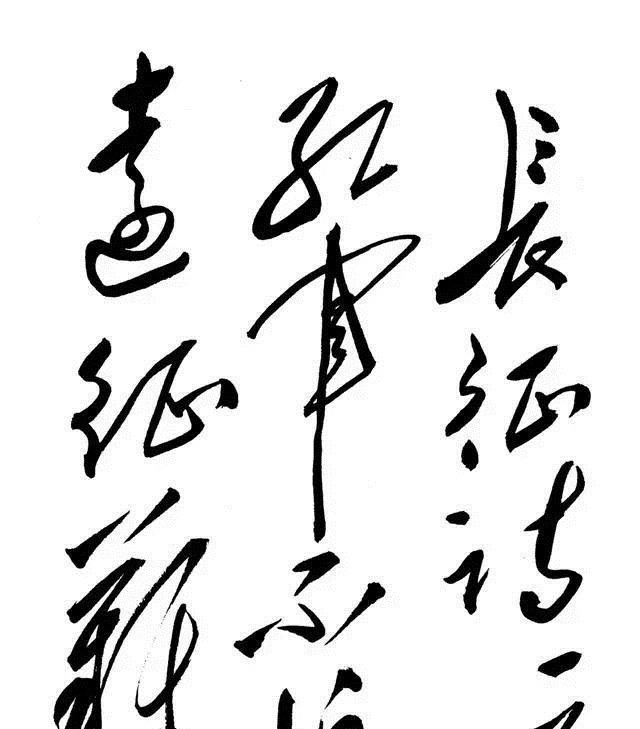 長征詩一
红軍不怕
遠征難